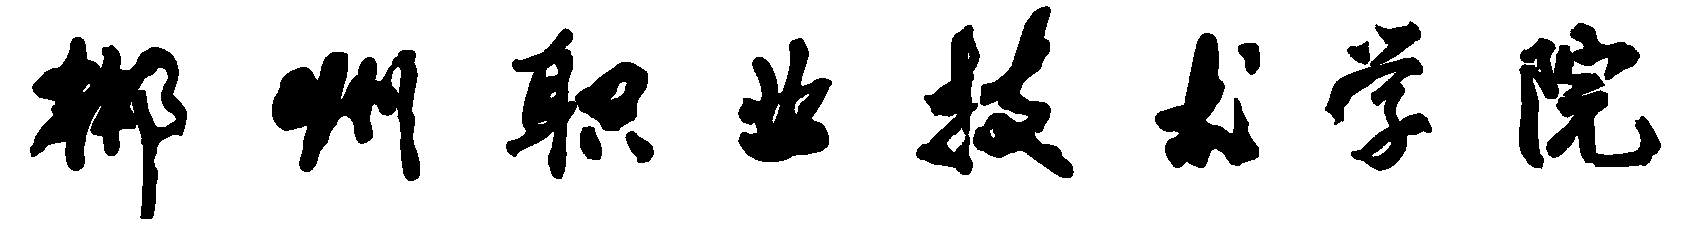 郴州职业技术学院